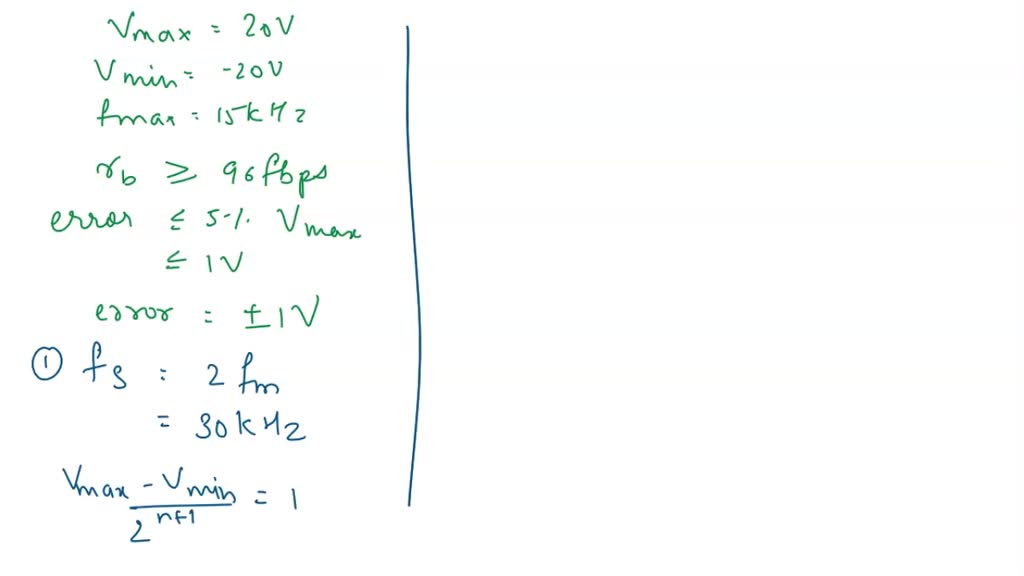 Vmax = 20V
Vmin = -20V
fmax = 15kHz
rb ≥ 96fbps
error ≤ 5% Vmax
≤ 1V
error = ±1V
① fs = 2 fm
= 30kHz
Vmax - Vmin / 2^(n+1) = 1